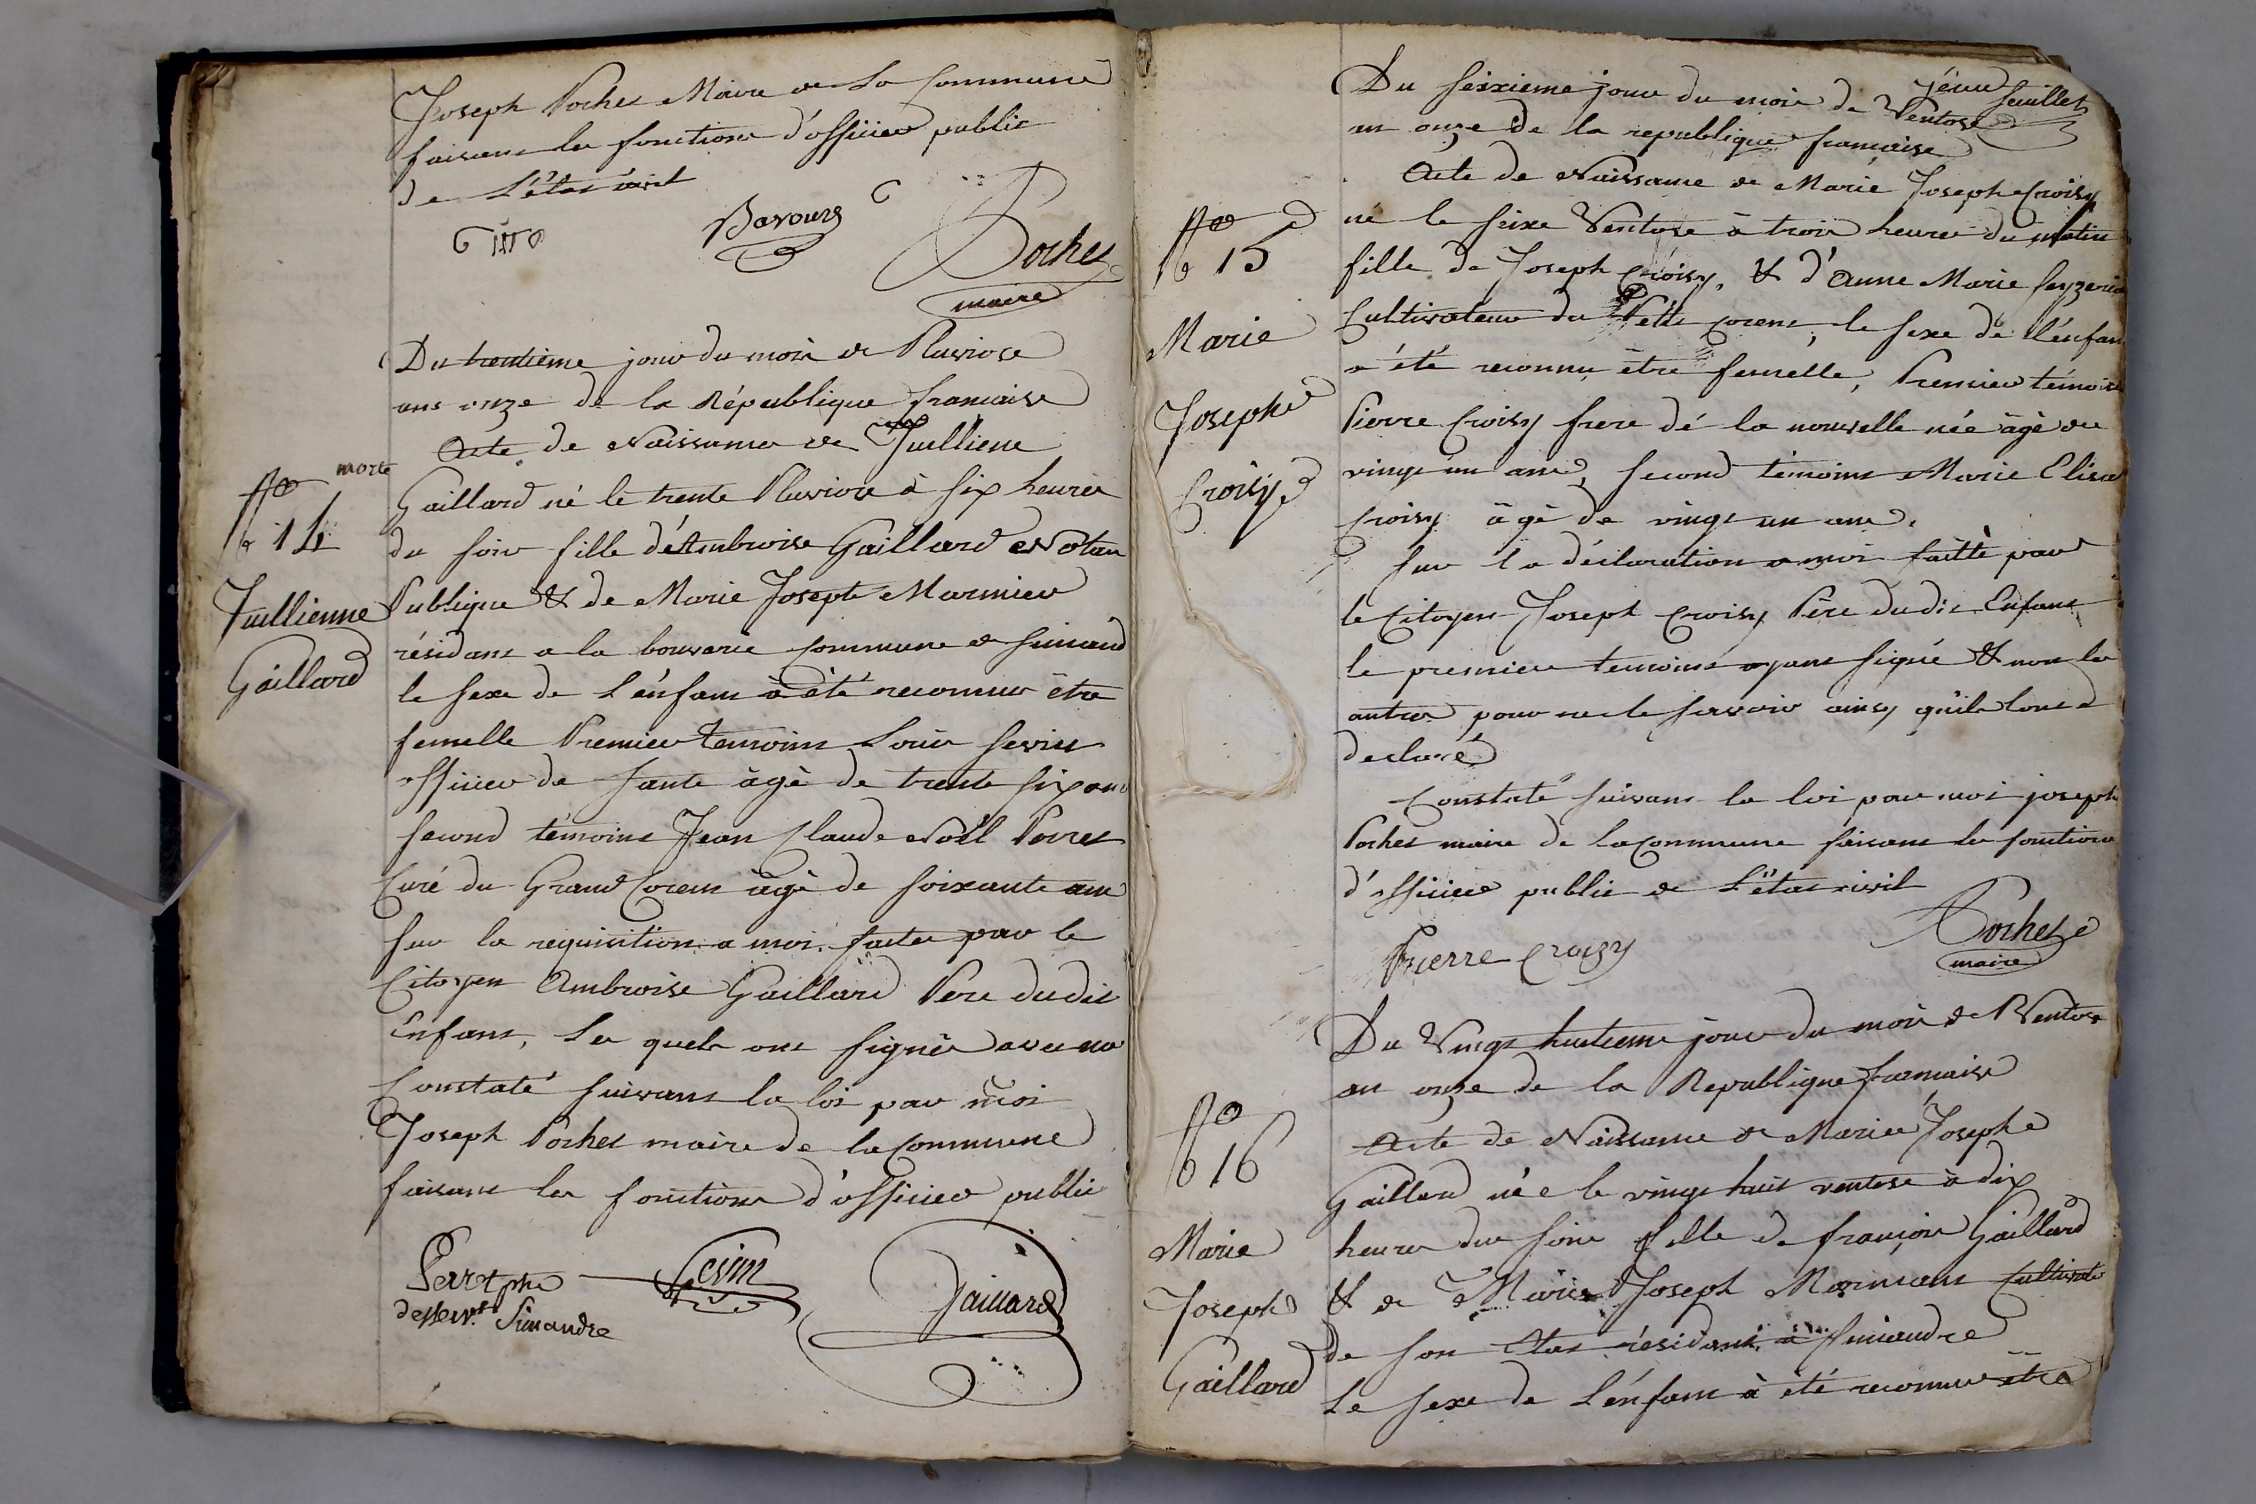 Joseph Pochet Maire de La Commune
faisant les fonctions d'officier public
de L'état civil
Bavoux
Pochet
maire
Du trentième jour du mois de Pluviose
ans onze de la République française
Acte de Naissance de Juillienne
morte
Gaillard né le trente Pluviose à six heures
14
du soir fille d'Ambroise Gaillard Notair
Juillienne
Gaillard
Publique & de Marie Joseph Marmier
résidant a la bouverie commune de Simand
le sexe de L'énfant à été reconnu être
femelle Premier temoins Louis Sevin
officier de Santé âgé de trente six ans
second témoins Jean Claude Noël Perret
Curé du Grand Corent âgé de soixante ans
sur la requisition a moi faite par le
Citoyen Ambroise Gaillard Pere dudit
Enfant, Les quels ont signés avec nous
Constaté suivant la loi par moi
Joseph Pochet maire de la commune
faisant les fonctions d'officier public
Perret ptre
desserv.t Simandre
Sevin
Gaillard
feuillet
Du seixieme jour du mois de Ventose
an onze de la republique francaise
Acte de Naissance de Marie Josephe Croisy
15
Marie
Josephe
Croisy
né le seixe Ventose à trois heures du matin
fille de Joseph Croisy, & d'Anne Marie
Cultivateur du Petit Corent, le sexe de l'énfan
a été reconnu être femelle, Premier témoin
Pierre Croisy frere dé la nouvelle née âgé de
vingt un ans, second témoins Marie Elisa
Croisy âgé de vingt un ans.
sur la déclaration a moi faitte par
le Citoyen Joseph Croisy Père dudit Enfant
le premier temoins ayant signé & non les
autres pour ne le savoir ainsy quils lont
declaré
Constaté suivant la loi par moi joseph
Pochet maire de la commune faisant les fonctions
d'officier public de L'état civil
Pierre Croisy
Pochet
maire
Du Vingt huitieme jour du mois de Ventose
an onze de la Republique francaise
16
Marie
Joseph
Gaillard
Acte de Naissance de Marie Josephe
Gaillard née le vingt huit ventose à dix
heures du soir fille de françois Gaillard
& de Marie Joseph Marmant Cultivate
de son Etat résidant à Simandre
Le sexe de L'énfant à été reconnu être